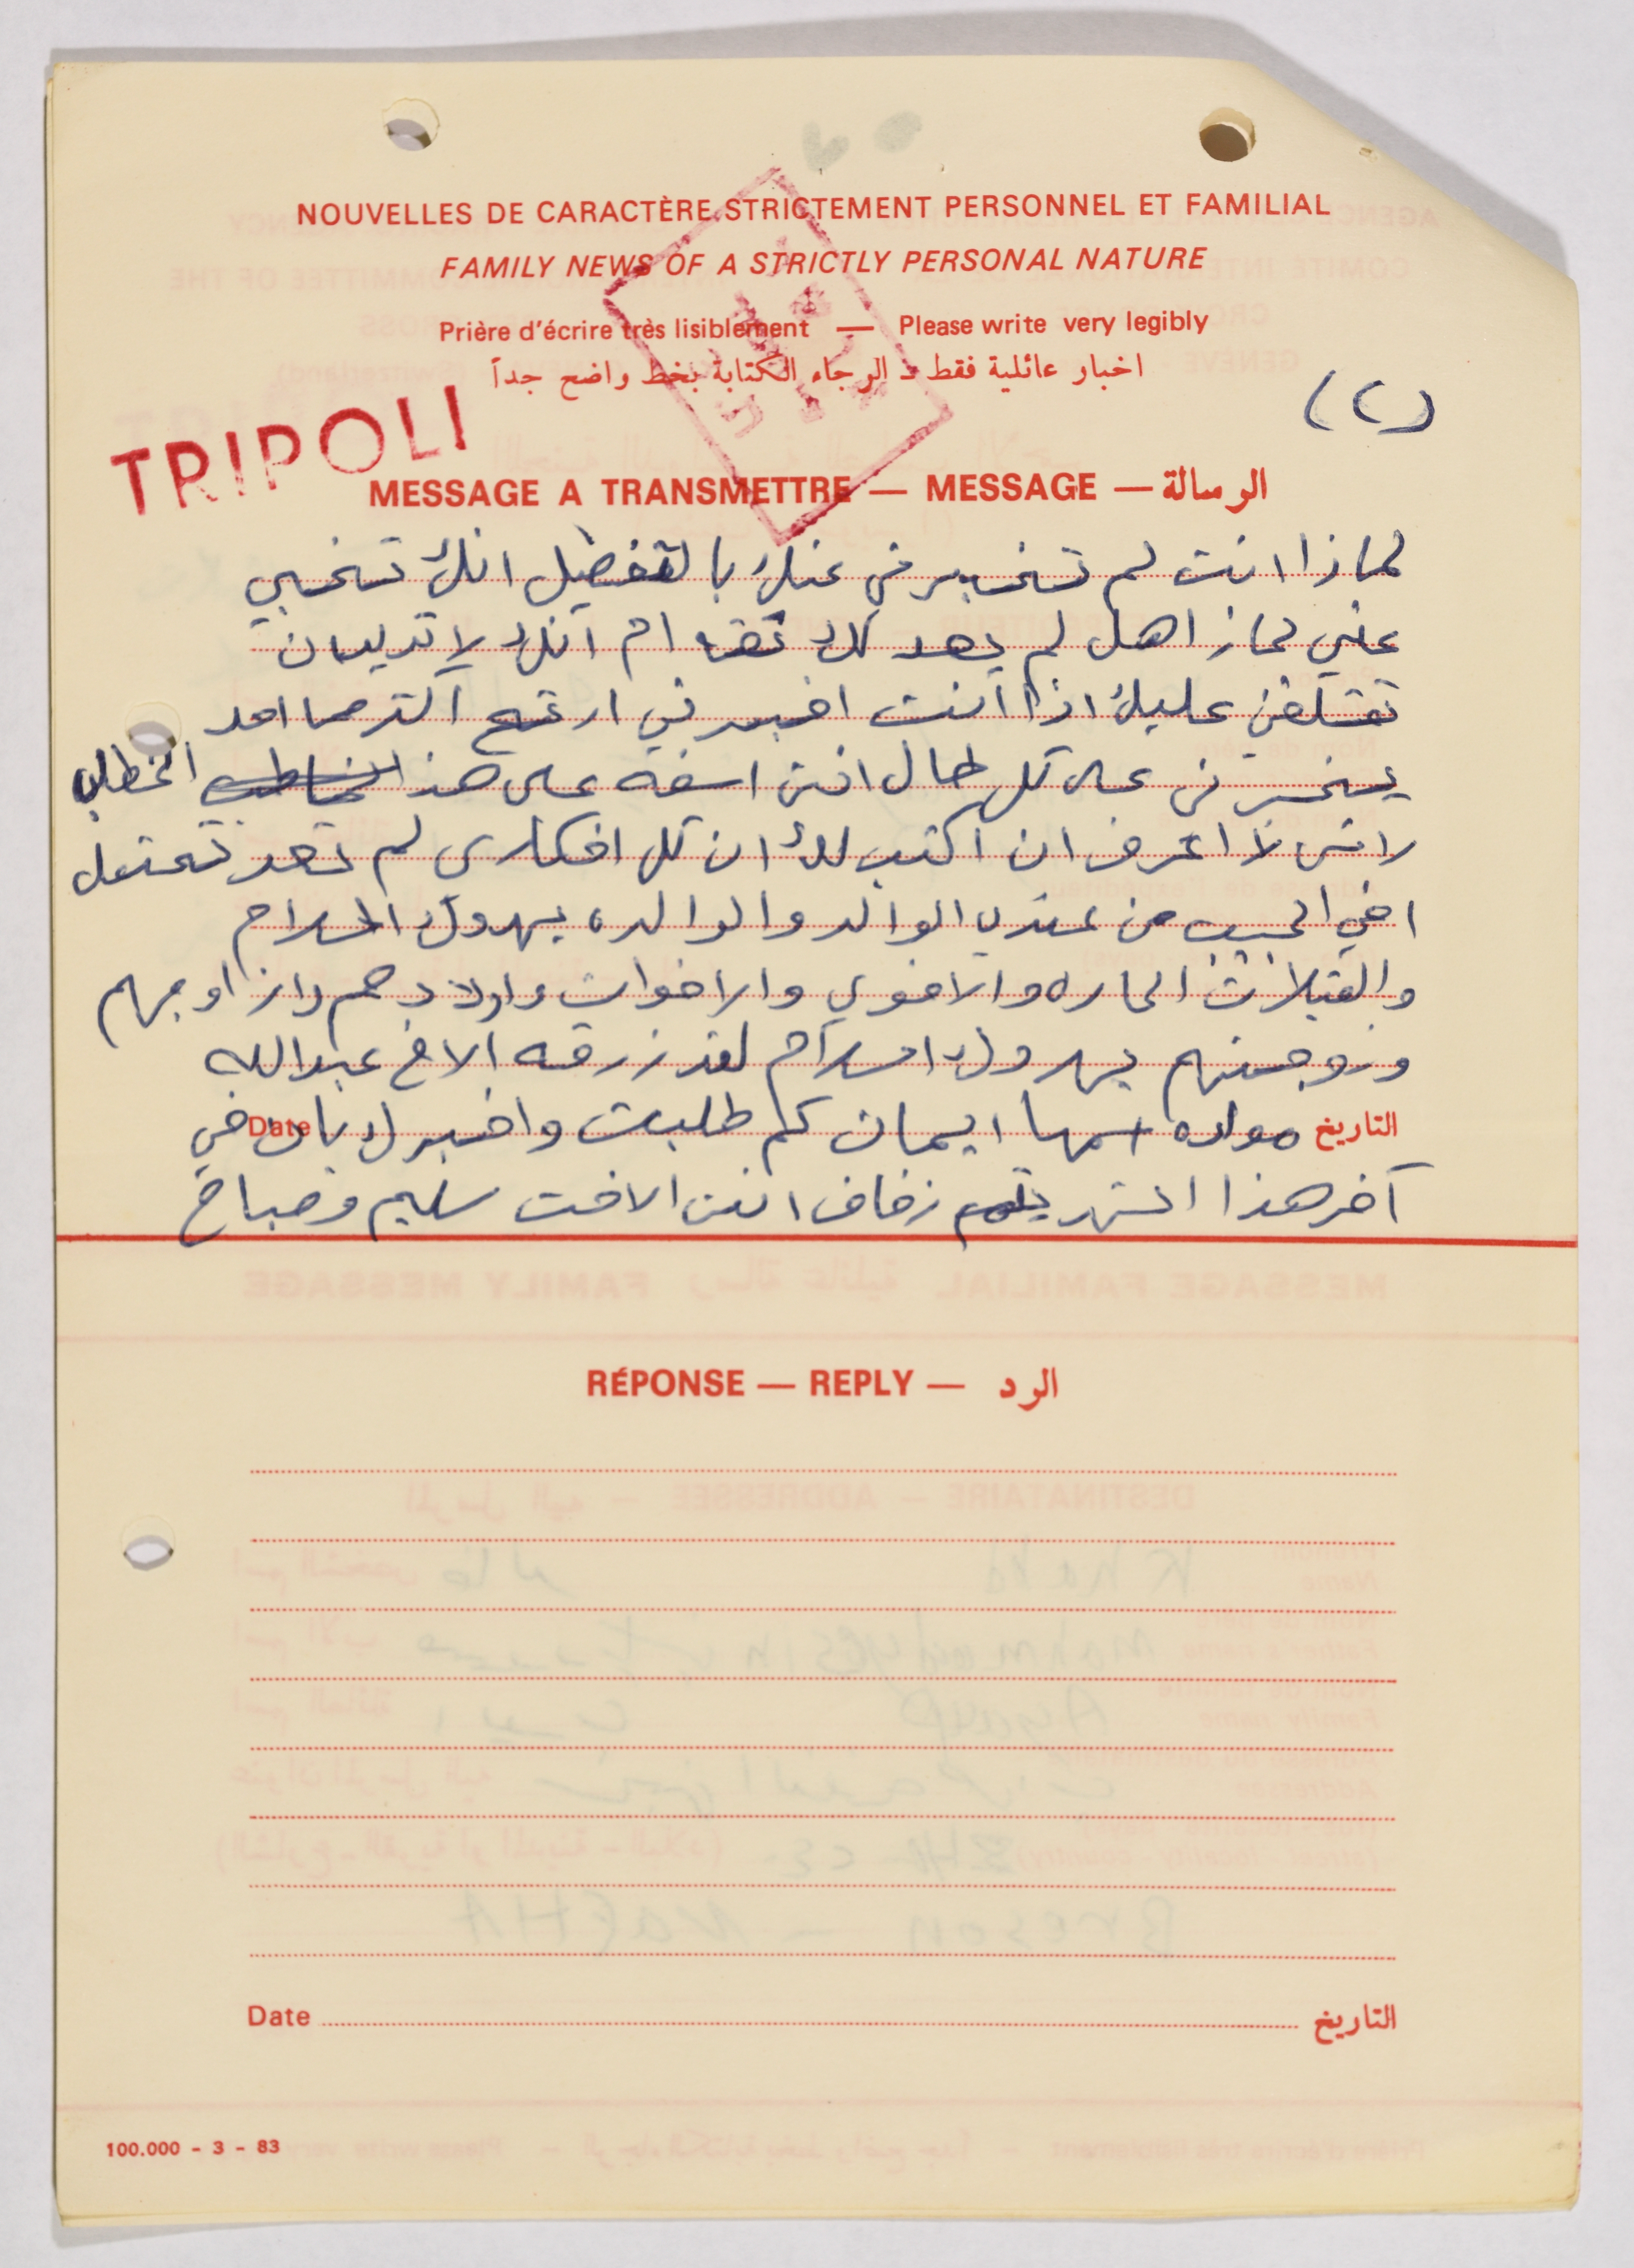 NOUVELLES DE CARACTÈRE STRICTEMENT PERSONNEL ET FAMILIAL
FAMILY NEWS OF A STRICTLY PERSONAL NATURE
Prière d'écrire très lisiblement — Please write very legibly
اخبار عائلية فقط ـ الرجاء الكتابة بخط واضح جداً
(٢)
TRIPOLI
MESSAGE A TRANSMETTRE — MESSAGE — الرسالة
لماذا انت لم تخبرني عنك بالتفضيل انك تخبي
عني لماذا هل لم يعد لك ثقه ام انك لا تريدان
تقلقني عليك اذا انت اخبرتني ارتح اكثر مما احد
يخبرني على كل حال انني اسفه على هذا الخطاب
لانني لا اعرف ان اكتب لك ان كل افكاري لم تعد تحتمل
اخي الحبيب من عندي الوالد والوالده يهدوك السلام
والقبلات الحاره والاخوي والاخوات واولادهم وازاوجهم
وزوجتهم يهدوك السلام لقد زرقه الاخ عبدالله
التاريخ مولده اسمها ايمان كم طلبت واخبرك بان في Date
آخر هذا الشهر يتم زفاف انني الاخت سليم وصباح
RÉPONSE — REPLY — الرد
Date التاريخ
100.000 - 3 - 83